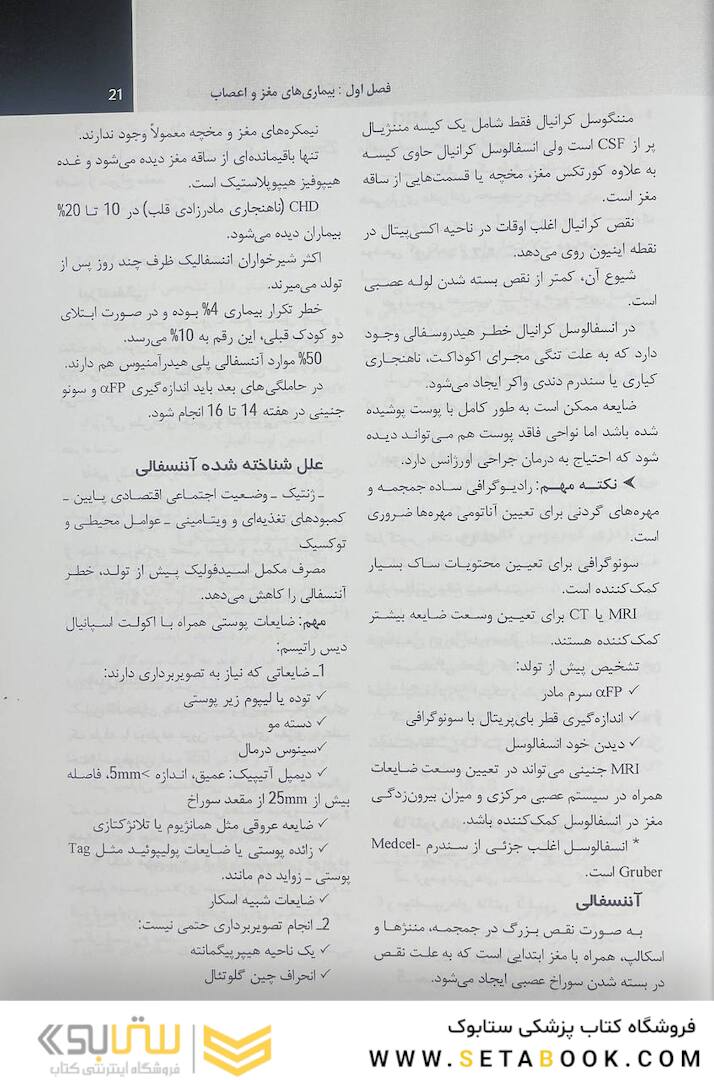 فصل اول : بیماری‌های مغز و اعصاب
21
مننگوسل کرانیال فقط شامل یک کیسه مننژیال
پر از CSF است ولی انسفالوسل کرانیال حاوی کیسه
به علاوه کورتکس مغز، مخچه یا قسمت‌هایی از ساقه
مغز است.
نقص کرانیال اغلب اوقات در ناحیه اکسی‌پیتال در
نقطه اینیون روی می‌دهد.
شیوع آن، کمتر از نقص بسته شدن لوله عصبی
است.
در انسفالوسل کرانیال خطر هیدروسفالی وجود
دارد که به علت تنگی مجرای اکوداکت، ناهنجاری
کیاری یا سندرم دندی واکر ایجاد می‌شود.
ضایعه ممکن است به طور کامل با پوست پوشیده
شده باشد اما نواحی فاقد پوست هم می‌تواند دیده
شود که احتیاج به درمان جراحی اورژانس دارد.
➤ نکته مهم: رادیوگرافی ساده جمجمه و
مهره‌های گردنی برای تعیین آناتومی مهره‌ها ضروری
است.
سونوگرافی برای تعیین محتویات ساک بسیار
کمک‌کننده است.
MRI یا CT برای تعیین وسعت ضایعه بیشتر
کمک‌کننده هستند.
تشخیص پیش از تولد:
✓ αFP سرم مادر
✓ اندازه‌گیری قطر بای‌پریتال با سونوگرافی
✓ دیدن خود انسفالوسل
MRI جنینی می‌تواند در تعیین وسعت ضایعات
همراه در سیستم عصبی مرکزی و میزان بیرون‌زدگی
مغز در انسفالوسل کمک‌کننده باشد.
* انسفالوسل اغلب جزئی از سندرم Medcel-
Gruber است.
آننسفالی
به صورت نقص بزرگ در جمجمه، مننژها و
اسکالپ، همراه با مغز ابتدایی است که به علت نقص
در بسته شدن سوراخ عصبی ایجاد می‌شود.
نیمکره‌های مغز و مخچه معمولاً وجود ندارند.
تنها باقیمانده‌ای از ساقه مغز دیده می‌شود و غده
هیپوفیز هیپوپلاستیک است.
CHD (ناهنجاری مادرزادی قلب) در 10 تا 20%
بیماران دیده می‌شود.
اکثر شیرخواران اننسفالیک ظرف چند روز پس از
تولد می‌میرند.
خطر تکرار بیماری 4% بوده و در صورت ابتلای
دو کودک قبلی، این رقم به 10% می‌رسد.
50% موارد آننسفالی پلی هیدرآمنیوس هم دارند.
در حاملگی‌های بعد باید اندازه‌گیری αFP و سونو
جنینی در هفته 14 تا 16 انجام شود.
علل شناخته شده آننسفالی
ـ ژنتیک ـ وضعیت اجتماعی اقتصادی پایین ـ
کمبودهای تغذیه‌ای و ویتامینی ـ عوامل محیطی و
توکسیک
مصرف مکمل اسیدفولیک پیش از تولد، خطر
آننسفالی را کاهش می‌دهد.
مهم: ضایعات پوستی همراه با اکولت اسپانیال
دیس راتیسم:
1ـ ضایعاتی که نیاز به تصویربرداری دارند:
✓ توده یا لیپوم زیر پوستی
✓ دسته مو
✓سینوس درمال
✓ دیمپل آتیپیک: عمیق، اندازه >5mm، فاصله
بیش از 25mm از مقعد سوراخ
✓ ضایعه عروقی مثل همانژیوم یا تلانژکتازی
✓ زائده پوستی یا ضایعات پولیپوئید مثل Tag
پوستی ـ زواید دم مانند.
✓ ضایعات شبیه اسکار
2ـ انجام تصویربرداری حتمی نیست:
✓ یک ناحیه هیپرپیگمانته
✓ انحراف چین گلوتئال
فروشگاه کتاب پزشکی ستابوک
WWW.SETABOOK.COM
ستابوک
فروشگاه اینترنتی کتاب